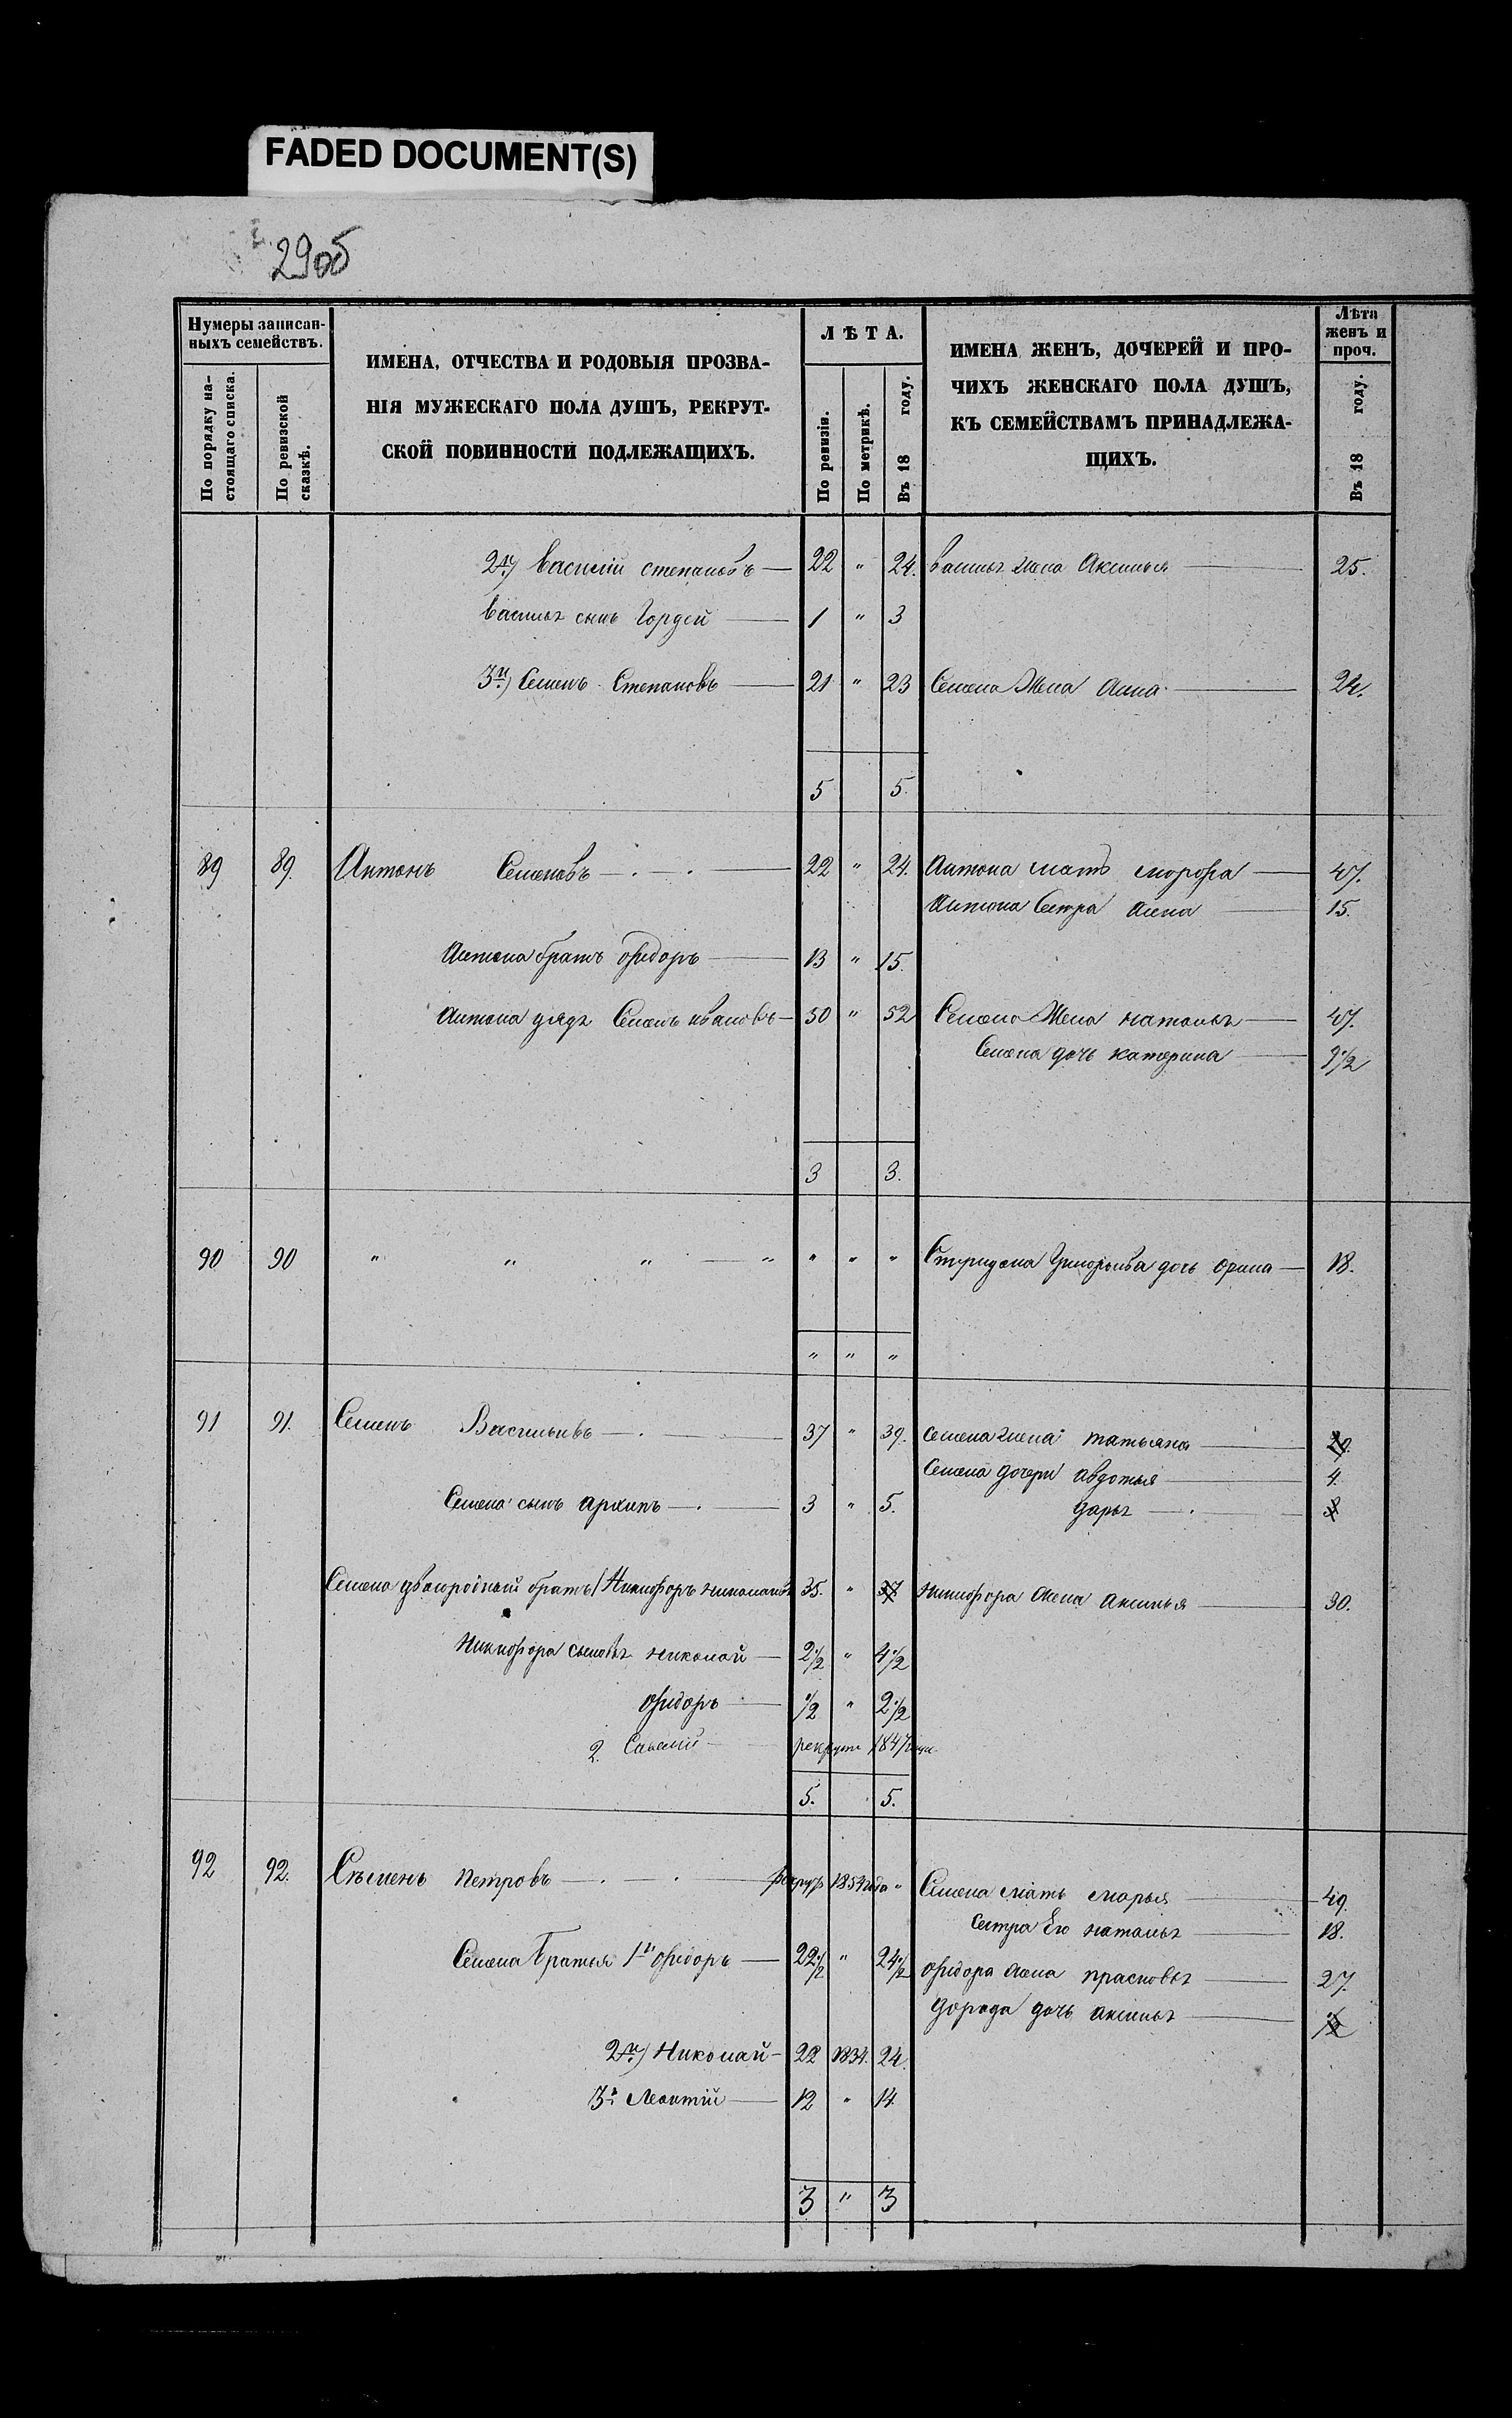 FADED DOCUMENT(S)
29об
Нумеры записан-
ныхъ семействъ.
По порядку на-
стоящаго списка.
По ревизской
сказкѣ.
ИМЕНА, ОТЧЕСТВА И РОДОВЫЯ ПРОЗВА-
НІЯ МУЖЕСКАГО ПОЛА ДУШЪ, РЕКРУТ-
СКОЙ ПОВИННОСТИ ПОДЛЕЖАЩИХЪ.
ЛѢТА.
По ревизіи.
По метрикѣ.
Въ 18 году.
ИМЕНА ЖЕНЪ, ДОЧЕРЕЙ И ПРО-
ЧИХЪ ЖЕНСКАГО ПОЛА ДУШЪ,
КЪ СЕМЕЙСТВАМЪ ПРИНАДЛЕЖА-
ЩИХЪ.
Лѣта
женъ и
проч.
Въ 18 году.
2й) василій степановъ — 22 " 24. васильг жена Аксинья — 25.
васильг сынъ Гордей — 1 " 3
3й) Семенъ Степановъ — 21 " 23 Семена Жена Анна — 24.
5 5.
89 89. Антонъ Семеновъ — 22 " 24. Антона мать марфа — 47.
Антона Сестра Анна — 15.
Антона братъ Фидоръ — 13 " 15.
Антона дядг Семенъ ивановъ — 50 " 52 Семена Жена натальг — 47.
Семена дочь катерина — 9 1/2
3 3.
90 90 " " " — " " " " Спиридона Григорьива дочь орина — 18.
" " "
91 91. Семенъ Васильивъ — 37 " 39. Семена жена татьяна —
Семена дочери авдотья — 4.
Семена сынъ архипъ — 3 " 5. дарьг —
Семена двоюродный братъ Никифоръ николаивъ 35. " 37 Никифора Жена аксинья — 30.
Никифора сыновьг николай — 2 1/2 " 4 1/2
Фидоръ — 1/2 " 2 1/2
2. Савелий — рекрутъ 1847
5. 5.
92 92. Съменъ петровъ — рекрутъ 1854 года " Семена мать марья — 49.
Сестра Его натальг — 18.
Семена Братья 1й Фидоръ — 22 1/2 " 24 1/2 Фидора жена прасковьг — 27.
дочь аксиньг —
2й) Николай — 22 1834. 24.
3й Леонтій — 12 " 14.
3 " 3